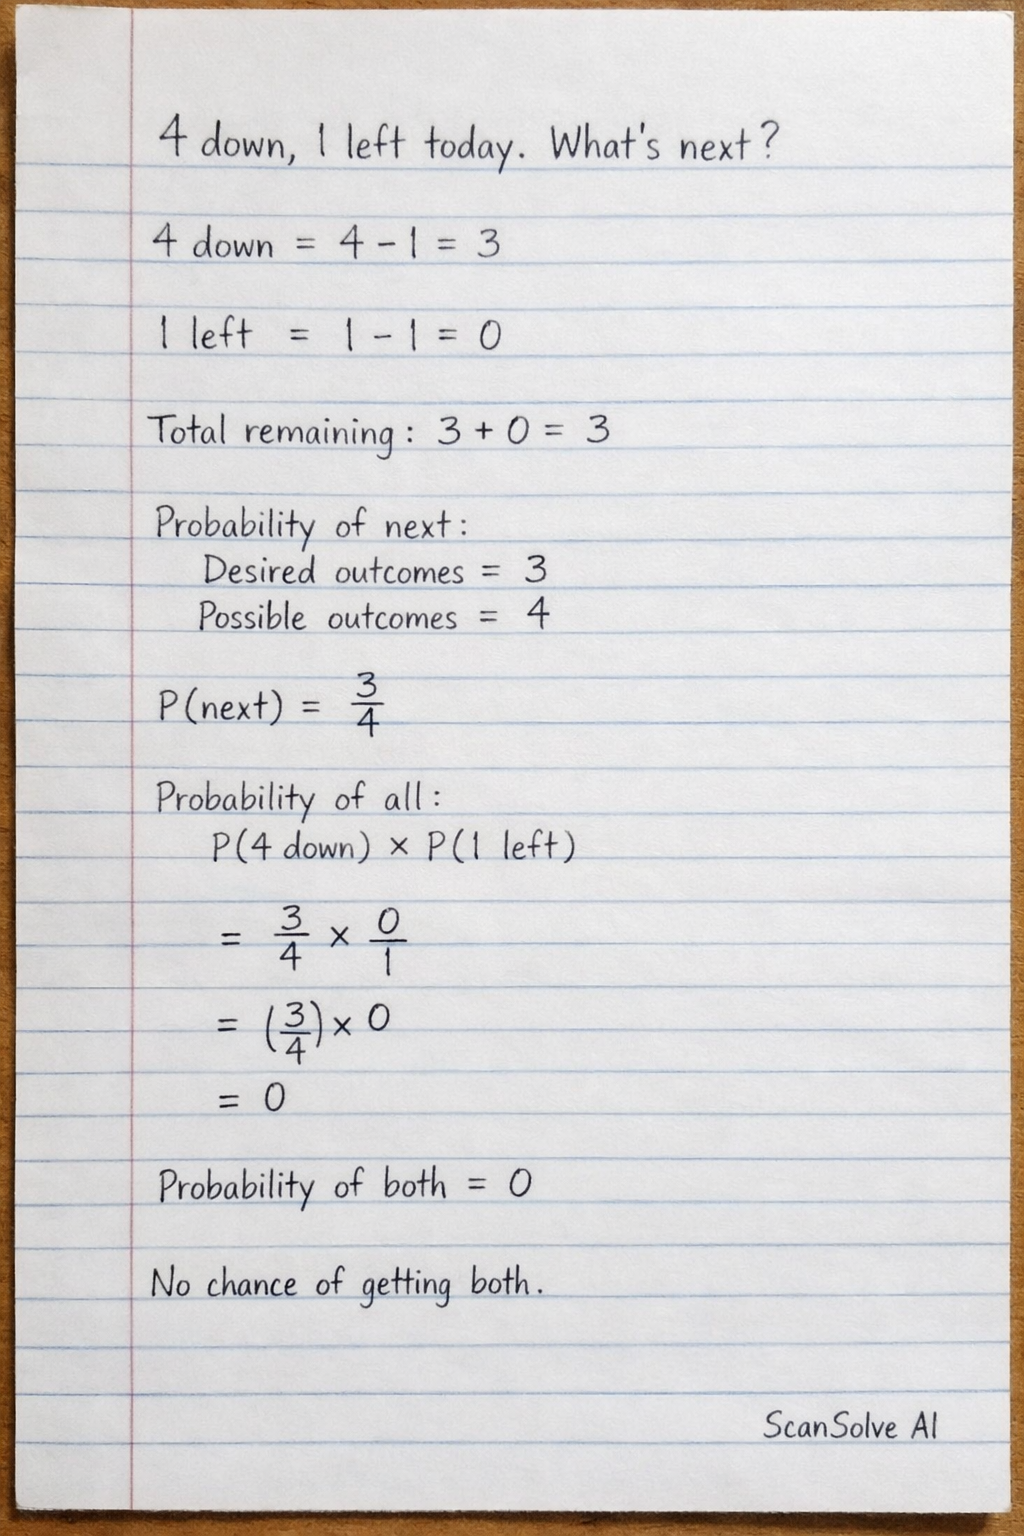 4 down, 1 left today. What's next?
4 down = 4 - 1 = 3
1 left = 1 - 1 = 0
Total remaining: 3 + 0 = 3
Probability of next:
Desired outcomes = 3
Possible outcomes = 4
P(next) = 3/4
Probability of all:
P(4 down) × P(1 left)
= 3/4 × 0/1
= (3/4) × 0
= 0
Probability of both = 0
No chance of getting both.
ScanSolve AI